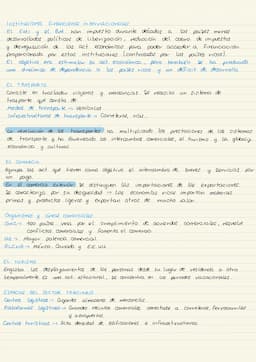 Instituciones financieras internacionales
El FMI y el BM han impuesto durante décadas a los países menos
desarrollados políticas de liberación, reducción del cobro de impuestos
y desregulación de las act. económicas para poder acceder a financiación
proporcionada por estas instituciones (controladas por los países ricos).
El objetivo era estimular su act. económica, pero también se ha producido
una dinámica de dependencia a los países ricos y un déficit de desarrollo.
EL TRANSPORTE
Consiste en trasladar viajeros y mercancías. Se necesita un sistema de
transporte que consta de:
medios de transporte → vehículos
Infraestructuras de transporte → carreteras, vías...
La revolución de los transportes ha multiplicado las prestaciones de los sistemas
de transporte y ha aumentado los intercambios comerciales, el turismo y la global.
económica y cultural.
EL COMERCIO
Agrupa las act. que tienen como objetivo el intercambio de bienes y servicios por
un pago.
En el comercio exterior se distinguen las importaciones de las exportaciones.
Se caracteriza por la desigualdad → Los económicos ricos importan materias
primas y productos ligeros y exportan otros de mucho valor.
Organismos y áreas comerciales
OMC → 160 países, vela por el cumplimiento de acuerdos comerciales, resuelve
conflictos comerciales y fomenta el comercio.
UE → Mayor potencia comercial
→ México, Canadá y EE.UU.
EL TURISMO
Engloba los desplazamientos de las personas desde su lugar de residencia a otro
temporalmente. Es una act. estacional, se concentra en los periodos vacacionales.
ESPACIOS DEL SECTOR TERCIARIO
Centros logísticos → Grandes almacenes de mercancías.
Plataformas logísticas → Grandes recintos comerciales conectados a carreteras, ferrocarriles
y aeropuertos.
Centros turísticos → Alta densidad de edificaciones e infraestructuras.